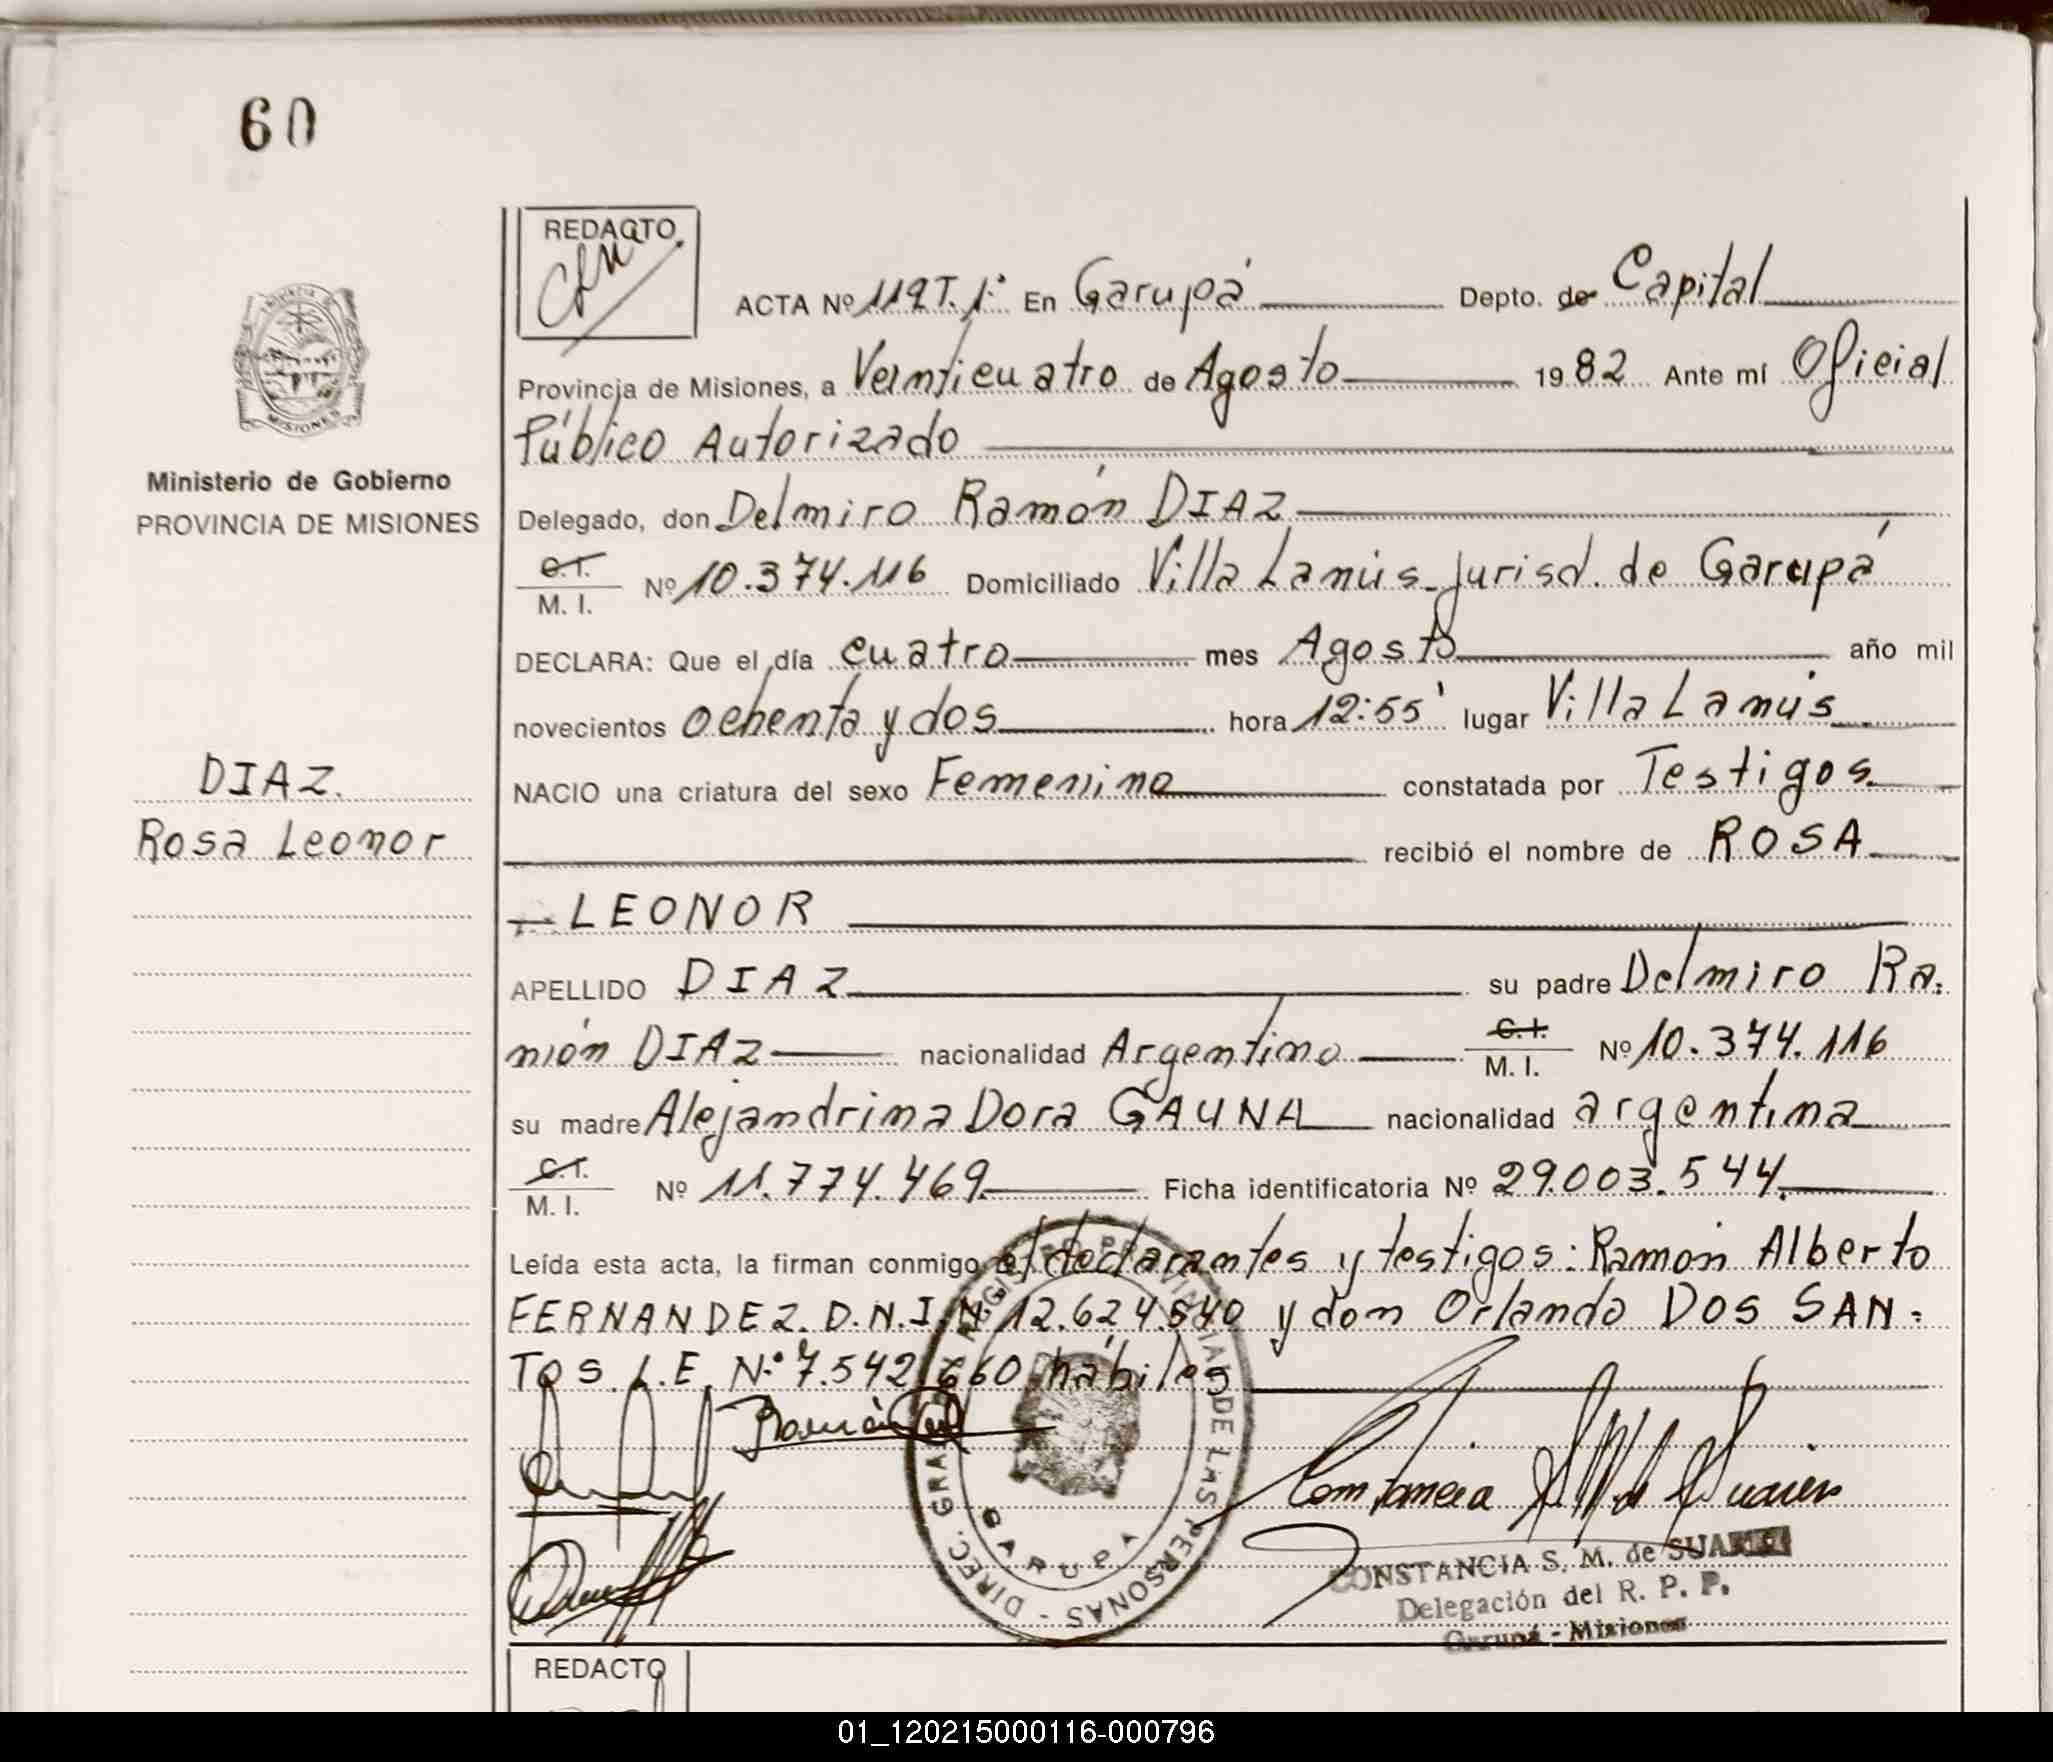 60
REDACTO
ACTA Nº 119 T. 1º En Garupá Depto. de Capital
Provincia de Misiones, a Veinticuatro de Agosto 1982 Ante mí Oficial
Público Autorizado
Delegado, don Delmiro Ramón DIAZ
C.I.
M. I. Nº 10.374.116 Domiciliado Villa Lanús-jurisd. de Garupá
Ministerio de Gobierno
PROVINCIA DE MISIONES
MISIONES
DECLARA: Que el día cuatro mes Agosto año mil
novecientos ochenta y dos hora 12:55' lugar Villa Lanús
DIAZ.
Rosa Leonor
NACIO una criatura del sexo Femenino constatada por Testigos
recibió el nombre de ROSA
LEONOR
APELLIDO DIAZ su padre Delmiro Ra-
món DIAZ nacionalidad Argentino C.I. M. I. Nº 10.374.116
su madre Alejandrina Dora GAUNA nacionalidad argentina
C.I. M. I. Nº 11.774.469 Ficha identificatoria Nº 29.003.544
Leída esta acta, la firman conmigo el declarantes y testigos: Ramón Alberto
FERNANDEZ. D.N.I. Nº 12.624.540 y don Orlando DOS SAN-
TOS L.E. Nº 7.542.660 hábiles
DIREC. GRAL. REGISTRO PROVINCIAL DE LAS PERSONAS -
GARUPA
CONSTANCIA S. M. de SUAREZ
Delegación del R. P. P.
Garupá - Misiones
REDACTO
01_120215000116-000796